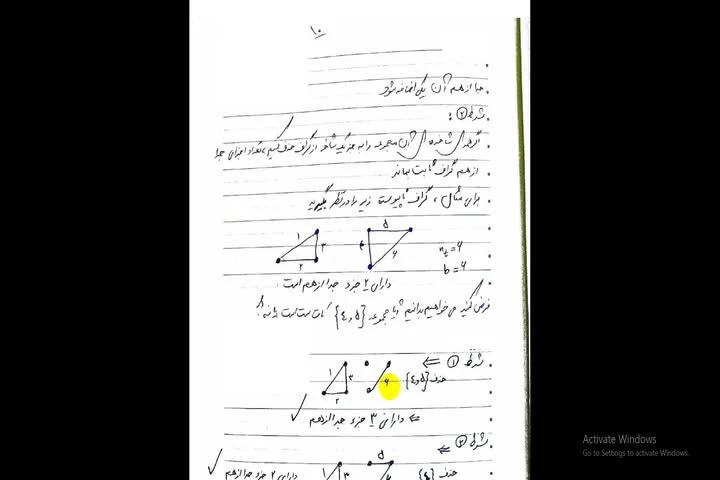 ۱۰
جدا از هم آن یکی اضافه شود
شرط ۲ :
اگر همه ی شاخه های آن مجموعه را به جز یک شاخه از گراف حذف کنیم، تعداد اجزای جدا
از هم گراف ثابت بماند
برای مثال، گراف ناپیوسته زیر را در نظر بگیرید
۱ ۲ ۳ ۴ ۵ ۶
nt = ۶
b = ۶
دارای ۲ جزء جدا از هم است.
فرض کنید می خواهیم بدانیم آیا مجموعه {۵ و ۴} کات ست است یا نه؟
شرط ۱ ⇐
حذف {۵ و ۴}
۱ ۲ ۳ ۶
⇐ دارای ۳ جزء جدا از هم ✓
شرط ۲ ⇐
حذف {۴}
۱ ۳ ۵ ۶
دارای ۲ جزء جدا از هم ✓
Activate Windows
Go to Settings to activate Windows.